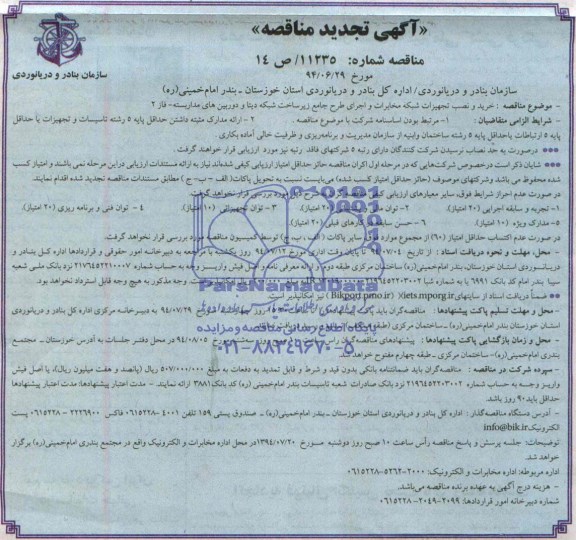 «آگهی تجدید مناقصه»
مناقصه شماره: ۱۱۲۳۵/ص ۱۴
مورخ ۹۴/۰۶/۲۹
سازمان بنادر و دریانوردی
سازمان بنادر و دریانوردی/ اداره کل بنادر و دریانوردی استان خوزستان ـ بندر امام‌خمینی(ره)
- موضوع مناقصه : خرید و نصب تجهیزات شبکه مخابرات و اجرای طرح جامع زیرساخت شبکه دیتا و دوربین های مداربسته- فاز ۲
- شرایط الزامی متقاضیان : ۱- مرتبط بودن اساسنامه شرکت با موضوع مناقصه . ۲- ارائه مدارک مثبته داشتن حداقل پایه ۵ رشته تاسیسات و تجهیزات یا حداقل
پایه ۵ ارتباطات یاحداقل پایه ۵ رشته ساختمان وابنیه از سازمان مدیریت و برنامه‌ریزی و ظرفیت خالی آماده بکاری
*** درصورت به حد نصاب نرسیدن شرکت کنندگان دارای رتبه ۵ شرکتهای فاقد رتبه نیز مورد ارزیابی قرار خواهند گرفت.
*** شایان ذکراست درخصوص شرکت‌هایی که در مرحله اول اکران مناقصه حائز حداقل امتیاز ارزیابی کیفی شده‌اند نیاز به ارائه مستندات ارزیابی دراین مرحله نمی باشند و امتیاز کسب
شده محفوظ می باشد وشرکتهای موصوف (حائز حداقل امتیاز کسب شده) می‌بایست نسبت به تحویل پاکات( الف – ب – ج ) مطابق مستندات مناقصه تجدید شده اقدام نمایند.
در صورت عدم احراز شرایط فوق، سایر معیارهای ارزیابی کیفی مورد بررسی قرار نخواهد گرفت.
۱- تجربه و سابقه اجرایی (۲۰ امتیاز). ۲- توان مالی (۲۰ امتیاز). ۳- توان تجهیزاتی (۱۰ امتیاز). ۴- توان فنی و برنامه ریزی (۲۰ امتیاز).
۵- مدارک ویژه (۱۰ امتیاز). ۶- حسن سابقه کارهای قبلی (۲۰ امتیاز).
در صورت عدم اکتساب حداقل امتیاز (۶۰) از مجموع موارد فوق سایر پاکات (الف ، ب، ج) توسط کمیسیون مناقصه مورد بررسی قرار نخواهد گرفت.
- محل، مهلت و نحوه دریافت اسناد : از تاریخ ۹۴/۰۷/۰۴ تا پایان وقت اداری مورخ ۹۴/۰۷/۱۲ روز یکشنبه با مراجعه به دبیرخانه امور حقوقی و قراردادها اداره کل بنادر و
دریانوردی استان خوزستان، بندر امام‌خمینی(ره) ساختمان مرکزی طبقه دوم
سیبا بندر امام کد بانک ۶۹۹۱ یا به شماره شبا وجه مذکور به هیچ وجه قابل استرداد نخواهد بود.
*** ضمناً دریافت اسناد از سایتهای iets.mporg.ir نیز امکانپذیر است.
- محل و مهلت تسلیم پاکت پیشنهادها : مناقصه‌گران باید ۹۴/۰۷/۲۹ به دبیرخانه مرکزی اداره کل بنادر و دریانوردی
استان خوزستان بندر امام‌خمینی(ره) ـ ساختمان مرکزی
- محل و زمان بازگشایی پاکت پیشنهادها : پیشنهادهای مناقصه‌گران ۹۴/۰۸/۰۵ در محل دفتر جلسات به آدرس خوزستان ـ مجتمع
بندری امام‌خمینی(ره)- ساختمان مرکزی ـ طبقه چهارم مفتوح خواهد شد.
- سپرده شرکت در مناقصه : مناقصه‌گران باید ضمانتنامه بانکی بدون قید و شرط و قابل تمدید به دفعات به مبلغ ۵۰۷/۰۰۰/۰۰۰ ریال (پانصد و هفت میلیون ریال)، یا اصل فیش
واریز وجه به حساب شماره ۲۱۹۶۴۵۲۲۰۳۰۰۲ نزد بانک صادرات شعبه تاسیسات بندر امام‌خمینی (ره) کد بانک۳۸۸۱ ارائه نمایند – مدت اعتبار پیشنهادها: مدت اعتبار پیشنهادها
حداقل باید۹۰ روز باشد.
- آدرس دستگاه مناقصه‌گذار : اداره کل بنادر و دریانوردی استان خوزستان - بندر امام‌خمینی(ره) – صندوق پستی ۱۵۹ تلفن ۴۰۰۱ -۰۶۱۵۲۲۸ فاکس ۲۲۲۶۹۰۰ -۰۶۱۵ پست
الکترونیکinfo@bik.ir
توضیحات: جلسه پرسش و پاسخ مناقصه رأس ساعت ۱۰ صبح روز دوشنبه مورخ ۱۳۹۴/۰۷/۲۰در محل اداره مخابرات و الکترونیک واقع در مجتمع بندری امام‌خمینی(ره) برگزار
خواهد شد.
اداره مربوطه: اداره مخابرات و الکترونیک: ۲۰۰۰-۵۲۶۲-۰۶۱۵۲۲۸
- هزینه درج آگهی به عهده برنده مناقصه می‌باشد.
شماره دبیرخانه امور قراردادها: ۲۰۹۹-۲۰۴۹-۰۶۱۵۲۲۸
ParsNamadData
پایگاه اطلاع رسانی مناقصه ومزایده
۰۲۱-۸۸۳۴۹۶۷۰-۵